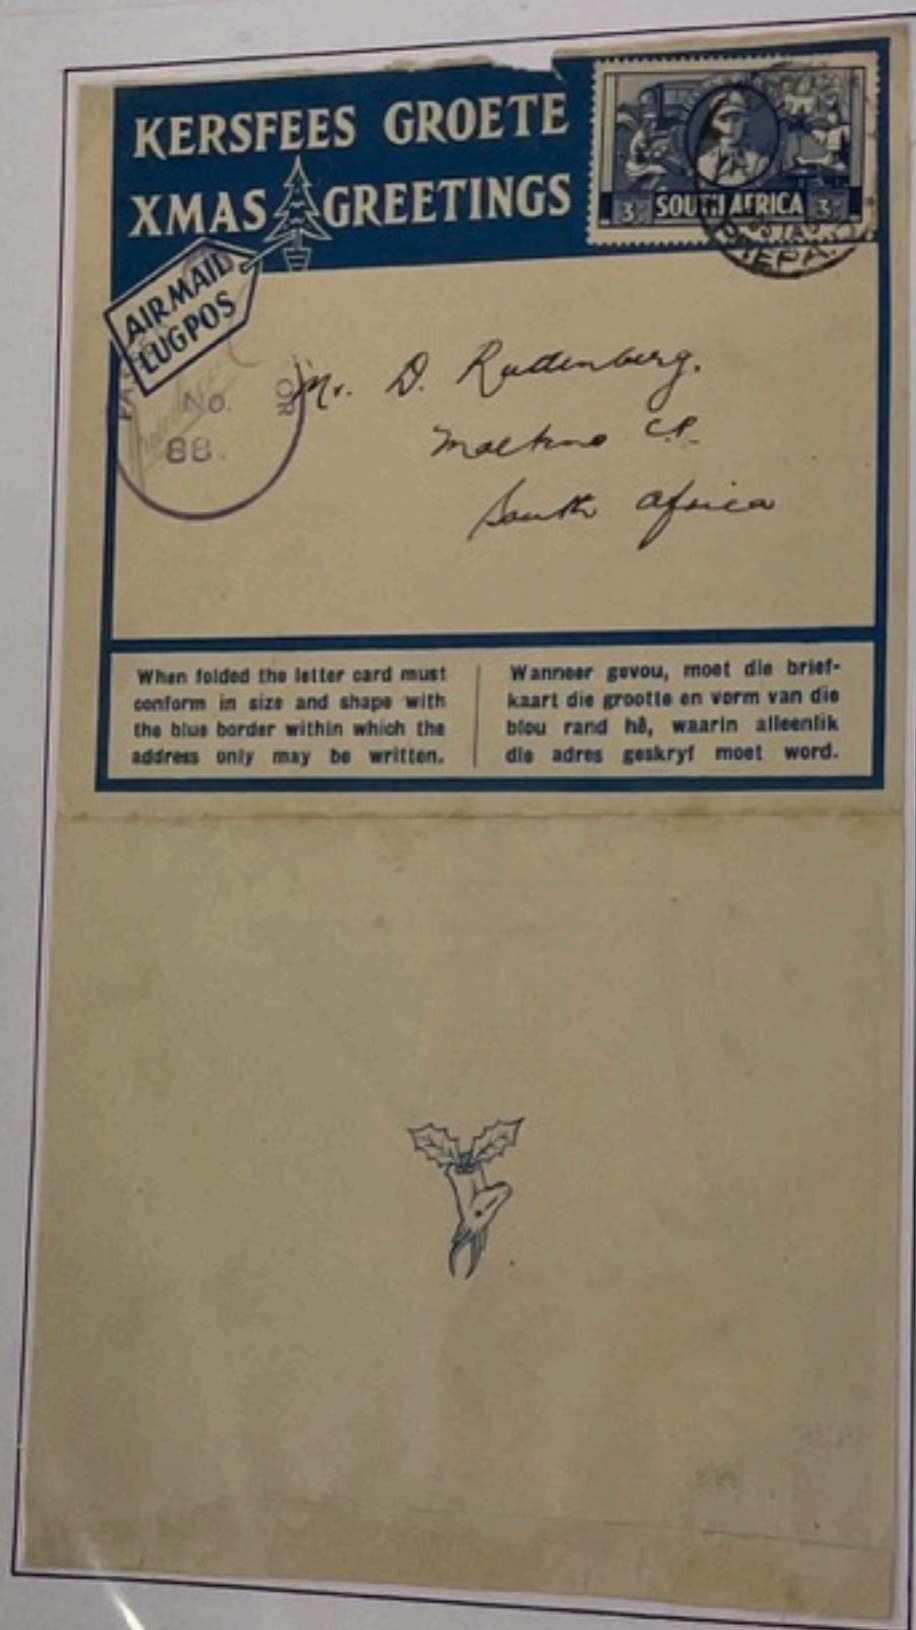 KERSFEES GROETE
XMAS GREETINGS
3D SOUTH AFRICA 3D
AIR MAIL
LUGPOS
No.
OR
88.
Mr. D. Rudenberg.
Molteno C.P.
South Africa
When folded the letter card must
conform in size and shape with
the blue border within which the
address only may be written.
Wanneer gevou, moet die brief-
kaart die grootte en vorm van die
blou rand hê, waarin alleenlik
die adres geskryf moet word.